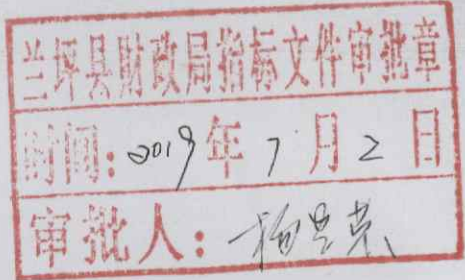 兰坪县财政局指标文件审批章
时间：2019年7月2日
审批人：